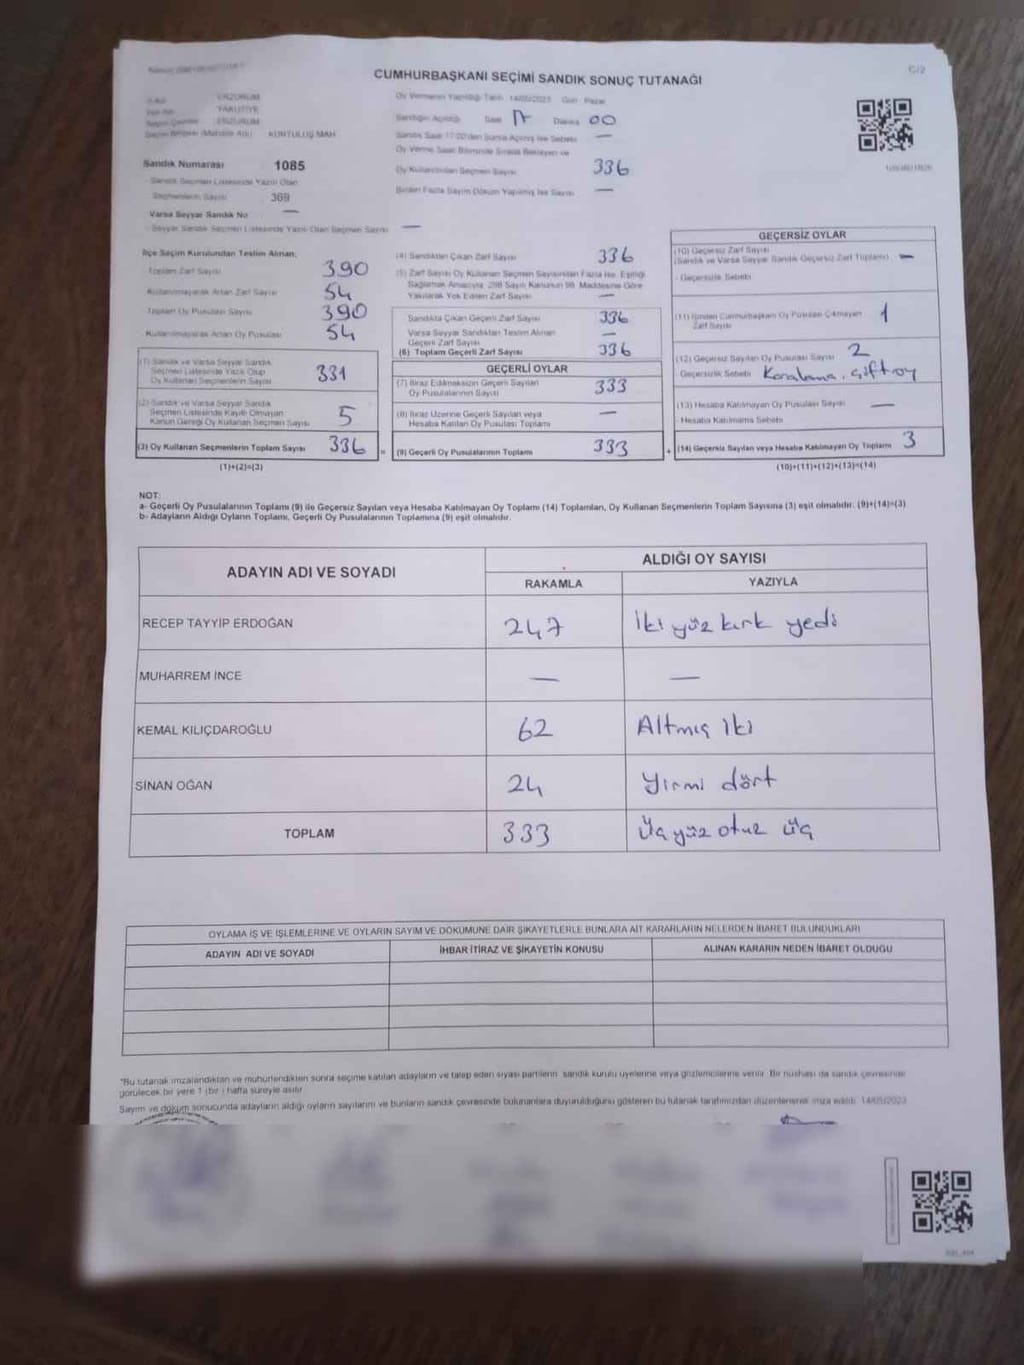 CUMHURBAŞKANI SEÇİMİ SANDIK SONUÇ TUTANAĞI
C/2
ERZURUM
YAKUTİYE
ERZURUM
KURTULUŞ MAH
Oy Vermenin Yapıldığı Tarih 14/05/2023 Gün Pazar
Sandığın Açıldığı Saat 17 Dakika 00
Sandık Saat 17:00'den Sonra Açılmış İse Sebebi —
Oy Kullandıran Seçmen Sayısı 336
Birden Fazla Sayım Döküm Yapılmış İse Sayısı —
Sandık Numarası 1085
Sandık Seçmen Listesinde Yazılı Olan
Seçmenlerin Sayısı 369
Varsa Seyyar Sandık No —
Seyyar Sandık Seçmen Listesinde Yazılı Olan Seçmen Sayısı —
İlçe Seçim Kurulundan Teslim Alınan;
Toplam Zarf Sayısı 390
Kullanılmayarak Artan Zarf Sayısı 54
Toplam Oy Pusulası Sayısı 390
Kullanılmayarak Artan Oy Pusulası 54
(1) Sandık ve Varsa Seyyar Sandık
Seçmen Listesinde Yazılı Olup
Oy Kullanan Seçmenlerin Sayısı 331
(2) Sandık ve Varsa Seyyar Sandık
Seçmen Listesinde Kayıtlı Olmayan
Kanun Gereği Oy Kullanan Seçmen Sayısı 5
(3) Oy Kullanan Seçmenlerin Toplam Sayısı 336
(1)+(2)=(3)
(4) Sandıktan Çıkan Zarf Sayısı 336
(5) Zarf Sayısı Oy Kullanan Seçmen Sayısından Fazla İse, Eşitliği
Sağlamak Amacıyla, 298 Sayılı Kanunun 98. Maddesine Göre
Yakılarak Yok Edilen Zarf Sayısı —
Sandıkta Çıkan Geçerli Zarf Sayısı 336
Varsa Seyyar Sandıktan Teslim Alınan
Geçerli Zarf Sayısı —
(6) Toplam Geçerli Zarf Sayısı 336
GEÇERLİ OYLAR
(7) İtiraz Edilmeksizin Geçerli Sayılan
Oy Pusulalarının Sayısı 333
(8) İtiraz Üzerine Geçerli Sayılan veya
Hesaba Katılan Oy Pusulası Toplamı —
= (9) Geçerli Oy Pusulalarının Toplamı 333
GEÇERSİZ OYLAR
(10) Geçersiz Zarf Sayısı
(Sandık ve Varsa Seyyar Sandık Geçersiz Zarf Toplamı) —
- Geçersizlik Sebebi
(11) İçinden Cumhurbaşkanı Oy Pusulası Çıkmayan
Zarf Sayısı 1
(12) Geçersiz Sayılan Oy Pusulası Sayısı 2
Geçersizlik Sebebi Karalama, Çift oy
(13) Hesaba Katılmayan Oy Pusulası Sayısı —
- Hesaba Katılmama Sebebi
+ (14) Geçersiz Sayılan veya Hesaba Katılmayan Oy Toplamı 3
(10)+(11)+(12)+(13)=(14)
NOT:
a- Geçerli Oy Pusulalarının Toplamı (9) ile Geçersiz Sayılan veya Hesaba Katılmayan Oy Toplamı (14) Toplamları, Oy Kullanan Seçmenlerin Toplam Sayısına (3) eşit olmalıdır. (9)+(14)=(3)
b- Adayların Aldığı Oyların Toplamı, Geçerli Oy Pusulalarının Toplamına (9) eşit olmalıdır.
ADAYIN ADI VE SOYADI
ALDIĞI OY SAYISI
RAKAMLA YAZIYLA
RECEP TAYYİP ERDOĞAN 247 İki yüz kırk yedi
MUHARREM İNCE — —
KEMAL KILIÇDAROĞLU 62 Altmış iki
SİNAN OĞAN 24 Yirmi dört
TOPLAM 333 Üç yüz otuz üç
OYLAMA İŞ VE İŞLEMLERİNE VE OYLARIN SAYIM VE DÖKÜMÜNE DAİR ŞİKAYETLERLE BUNLARA AİT KARARLARIN NELERDEN İBARET BULUNDUKLARI
ADAYIN ADI VE SOYADI İHBAR İTİRAZ VE ŞİKAYETİN KONUSU ALINAN KARARIN NEDEN İBARET OLDUĞU
*Bu tutanak imzalandıktan ve mühürlendikten sonra seçime katılan adayların ve talep eden siyasi partilerin sandık kurulu üyelerine veya gözlemcilerine verilir. Bir nüshası da sandık çevresinde
görülecek bir yere 1 (bir) hafta süreyle asılır
Sayım ve döküm sonucunda adayların aldığı oyların sayılarını ve bunların sandık çevresinde bulunanlara duyurulduğunu gösteren bu tutanak tarafımızdan düzenlenerek imza edildi. 14/05/2023